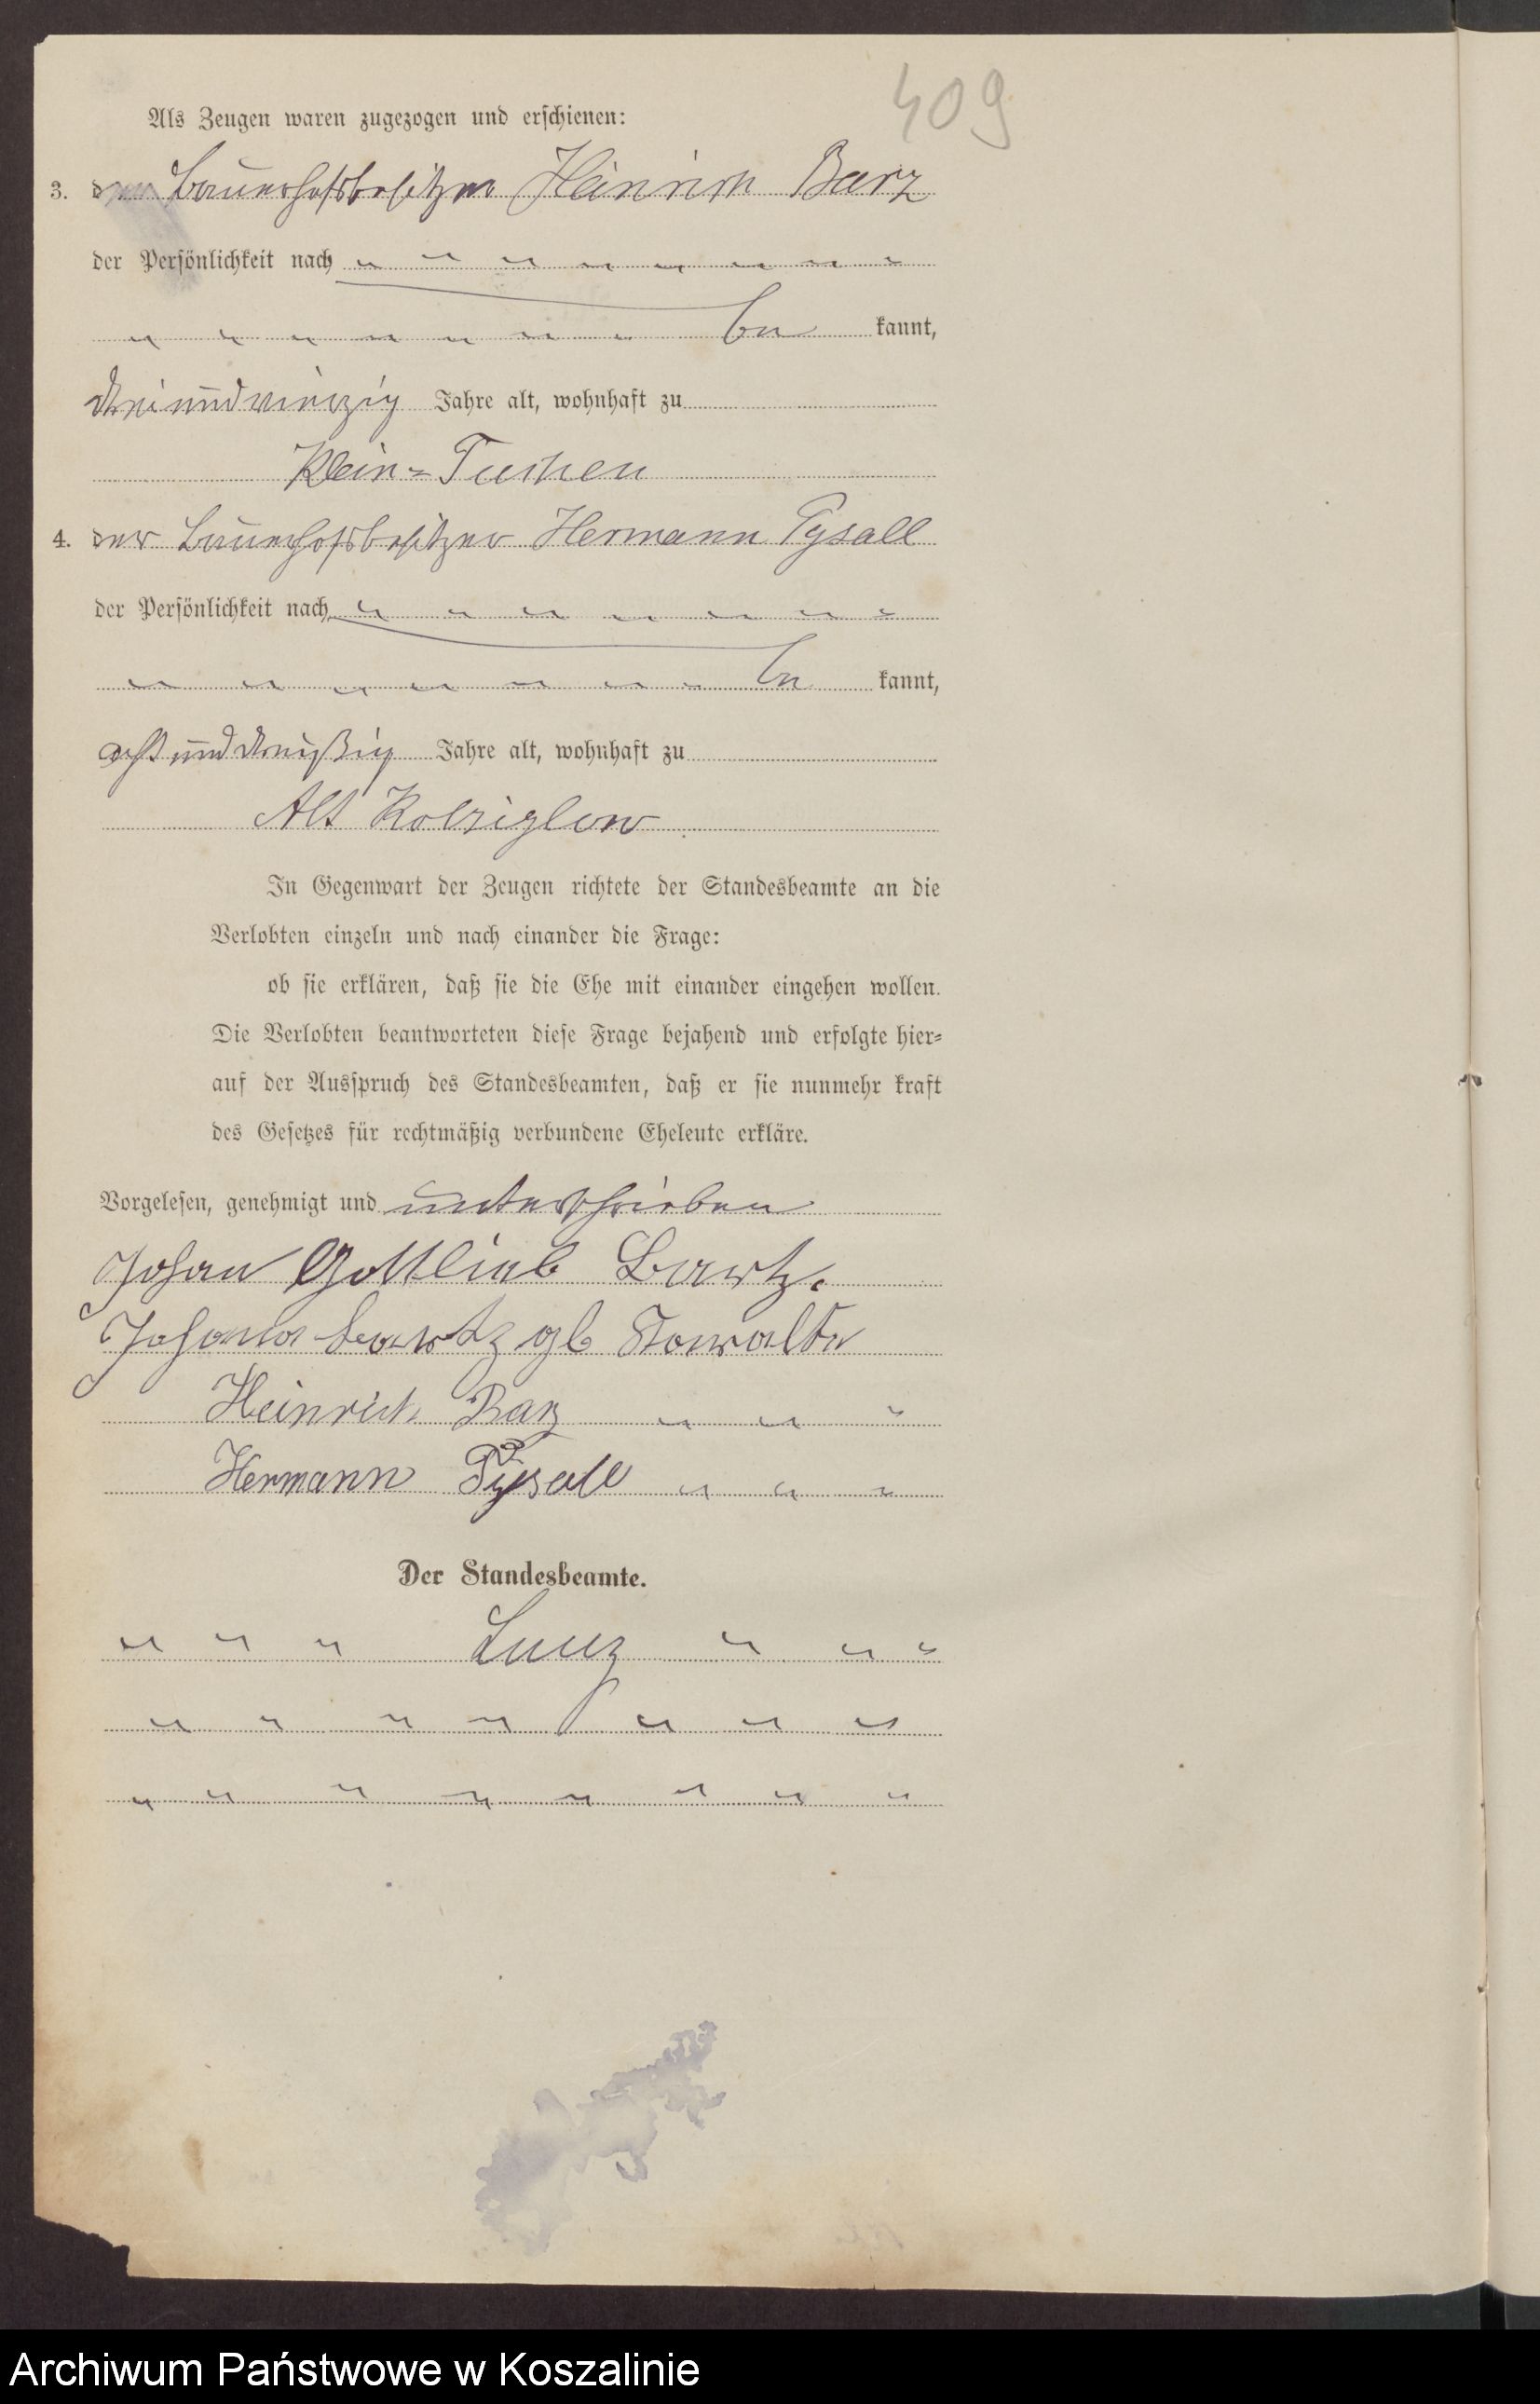 409
Als Zeugen waren zugezogen und erschienen:
3. der Bauerhofsbesitzer Heinrich Barz
der Persönlichkeit nach
be kannt,
dreiundvierzig Jahre alt, wohnhaft zu
Klein-Tuchen
4. der Bauerhofsbesitzer Hermann Pysall
der Persönlichkeit nach
be kannt,
achtunddreißig Jahre alt, wohnhaft zu
Alt Kolziglow
In Gegenwart der Zeugen richtete der Standesbeamte an die
Verlobten einzeln und nach einander die Frage:
ob sie erklären, daß sie die Ehe mit einander eingehen wollen.
Die Verlobten beantworteten diese Frage bejahend und erfolgte hier=
auf der Ausspruch des Standesbeamten, daß er sie nunmehr kraft
des Gesetzes für rechtmäßig verbundene Eheleute erkläre.
Vorgelesen, genehmigt und unterschrieben
Johan Gottlieb Bartz.
Johanna Bartz gb
Heinrich Barz
Hermann Pysall
Der Standesbeamte.